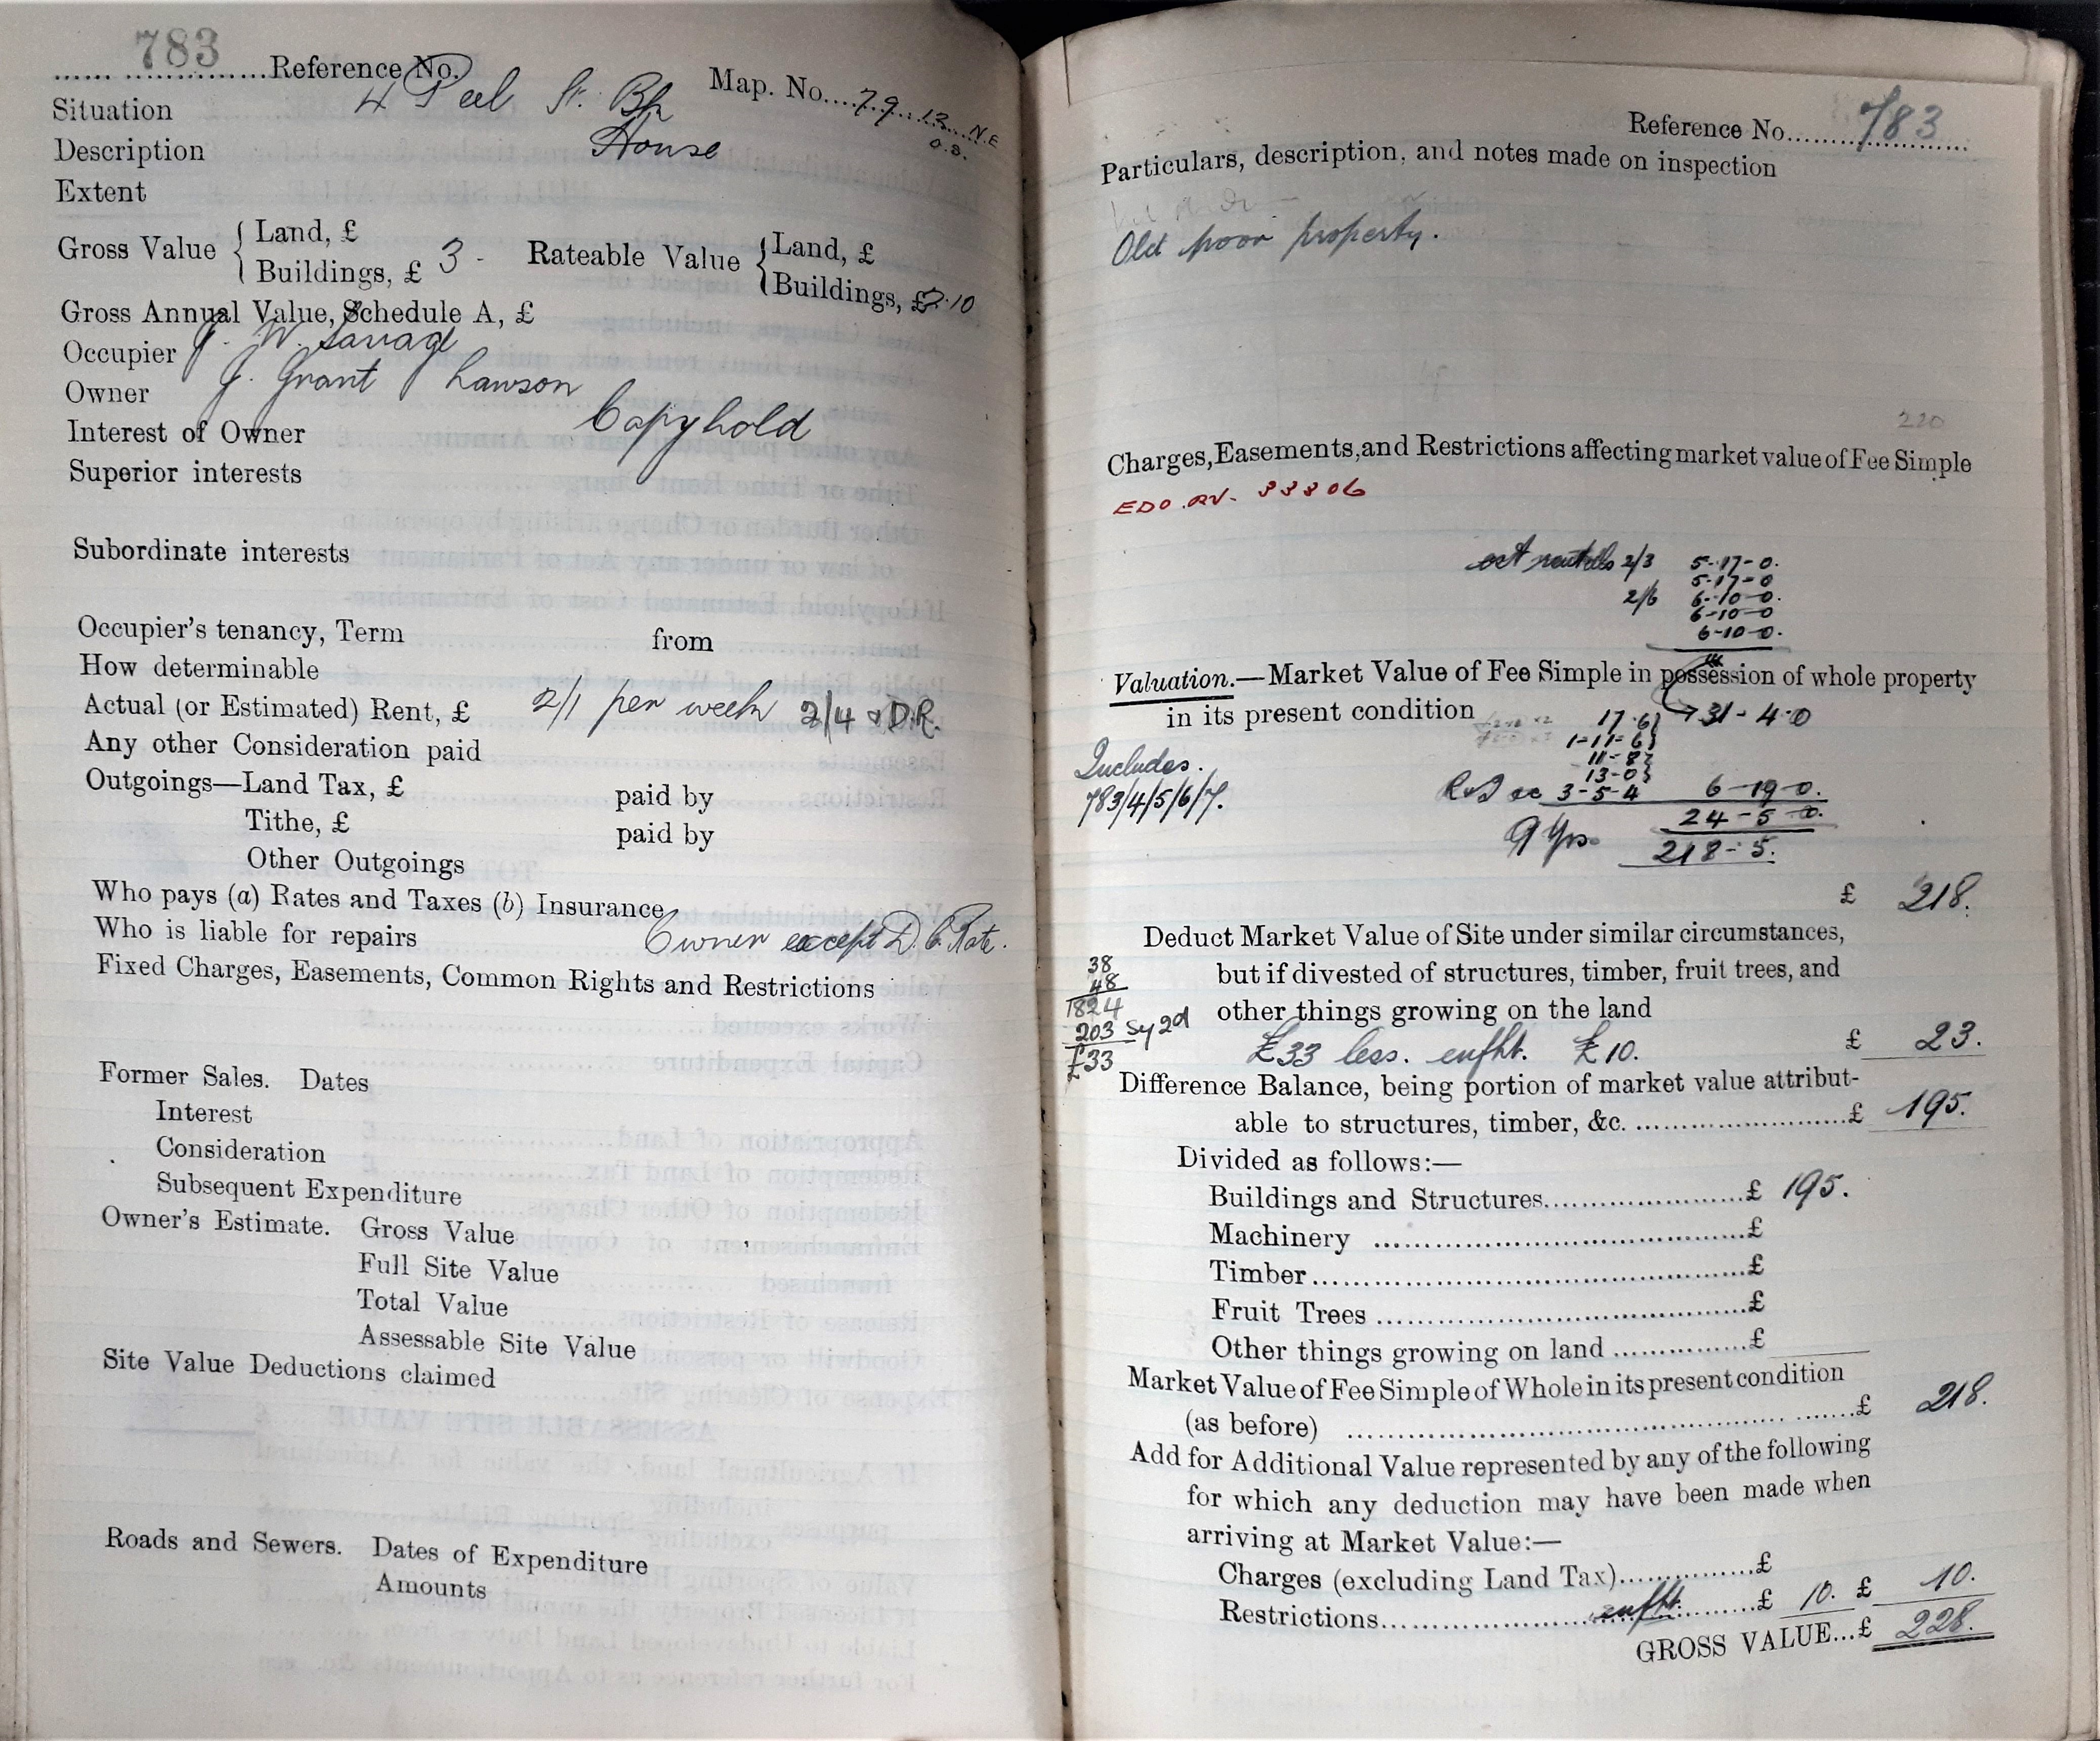 783
Reference No.
Map. No.... 79.13 N.E
O.S.
Situation 4 Peel St. Bk
Description House
Extent
Gross Value { Land, £
Buildings, £ 3 -
Rateable Value { Land, £
Buildings, £ 2.10
Gross Annual Value, Schedule A, £
Occupier J. W. Savage
Owner J. Grant Lawson
Interest of Owner Copyhold
Superior interests
Subordinate interests
Occupier's tenancy, Term from
How determinable
Actual (or Estimated) Rent, £ 2/1 per week 2/4 & D.R.
Any other Consideration paid
Outgoings—Land Tax, £ paid by
Tithe, £ paid by
Other Outgoings
Who pays (a) Rates and Taxes (b) Insurance
Who is liable for repairs Owner except D.C. Rate.
Fixed Charges, Easements, Common Rights and Restrictions
Former Sales. Dates
Interest
Consideration
Subsequent Expenditure
Owner's Estimate. Gross Value
Full Site Value
Total Value
Assessable Site Value
Site Value Deductions claimed
Roads and Sewers. Dates of Expenditure
Amounts
Reference No. 783
Particulars, description, and notes made on inspection
Old poor property.
220
Charges, Easements, and Restrictions affecting market value of Fee Simple
EDO. RV. 33306
2/3 5-17-0.
5-17-0
2/6 6-10-0.
6-10-0
6-10-0.
Valuation.—Market Value of Fee Simple in possession of whole property
in its present condition
17.6} 31-4.0
1-11-6}
11-8}
13-0}
Includes.
783/4/5/6/7.
3-5-4 6-19-0.
24-5-0.
9 Yrs. 218-5.
£ 218.
Deduct Market Value of Site under similar circumstances,
but if divested of structures, timber, fruit trees, and
other things growing on the land
38
48
1824
203 sy 2d
£33
£33 less. enfht. £10. £ 23.
Difference Balance, being portion of market value attribut-
able to structures, timber, &c. £ 195.
Divided as follows:—
Buildings and Structures £ 195.
Machinery £
Timber £
Fruit Trees £
Other things growing on land £
Market Value of Fee Simple of Whole in its present condition
(as before) £ 218.
Add for Additional Value represented by any of the following
for which any deduction may have been made when
arriving at Market Value:—
Charges (excluding Land Tax) £
Restrictions enfht. £ 10. £ 10.
GROSS VALUE...£ 228.